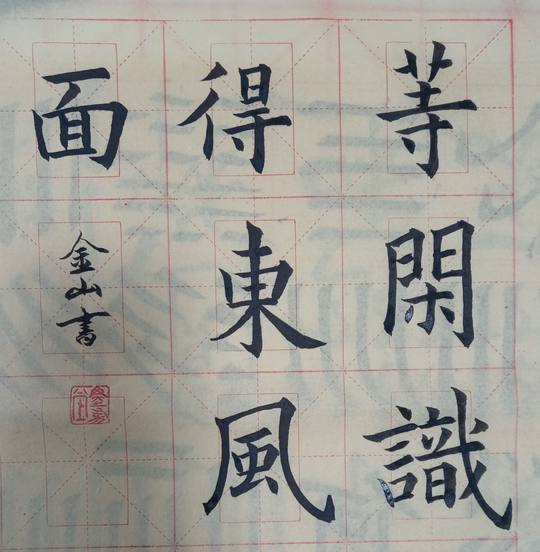 等閑識
得東風
面
金山書